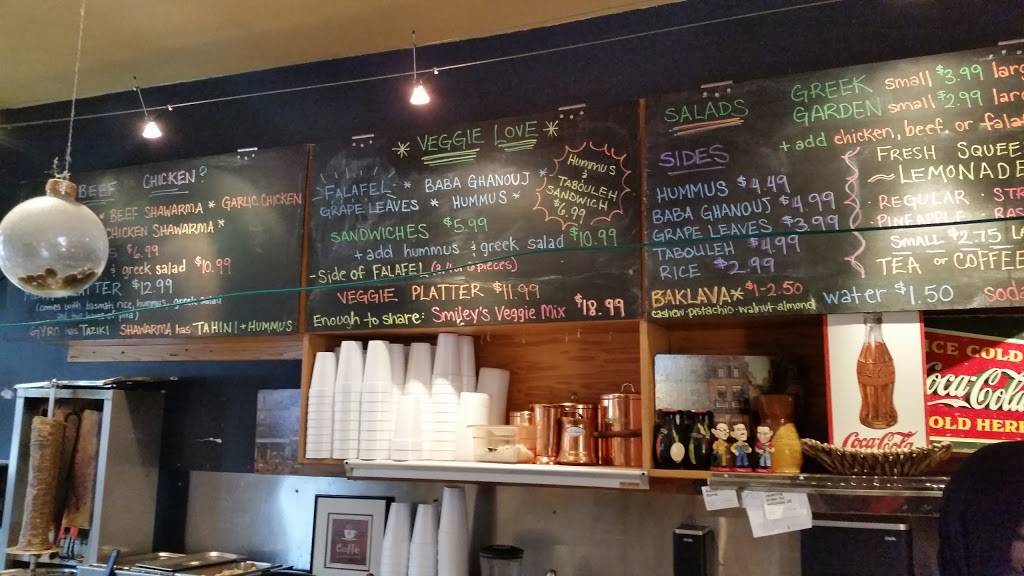 BEEF CHICKEN?
* BEEF SHAWARMA * GARLIC CHICKEN
CHICKEN SHAWARMA *
$6.99
& greek salad $10.99
PLATTER $12.99
(comes with basmati rice, hummus, greek salad
GYRO has TAZIKI SHAWARMA has TAHINI + HUMMUS
* VEGGIE LOVE *
FALAFEL * BABA GHANOUJ *
GRAPE LEAVES * HUMMUS *
HUMMUS
&
TABOULEH
SANDWICH
$6.99
SANDWICHES $5.99
+ add hummus & greek salad $10.99
- Side of FALAFEL
VEGGIE PLATTER $11.99
Enough to share: Smiley's Veggie Mix $18.99
SALADS
GREEK small $3.99 larg
GARDEN small $2.99 larg
+ add chicken, beef, or falaf
SIDES
HUMMUS $4.49
BABA GHANOUJ $4.99
GRAPE LEAVES $3.99
TABOULEH $4.99
RICE $2.99
FRESH SQUEE
~LEMONADE
- REGULAR STR
- PINEAPPLE RAS
SMALL $2.75 L
TEA or COFFEE
BAKLAVA* $1-2.50
cashew-pistachio-walnut-almond
water $1.50 soda
Coca-Cola
ICE COLD
Coca-Cola
OLD HERE
Caffe